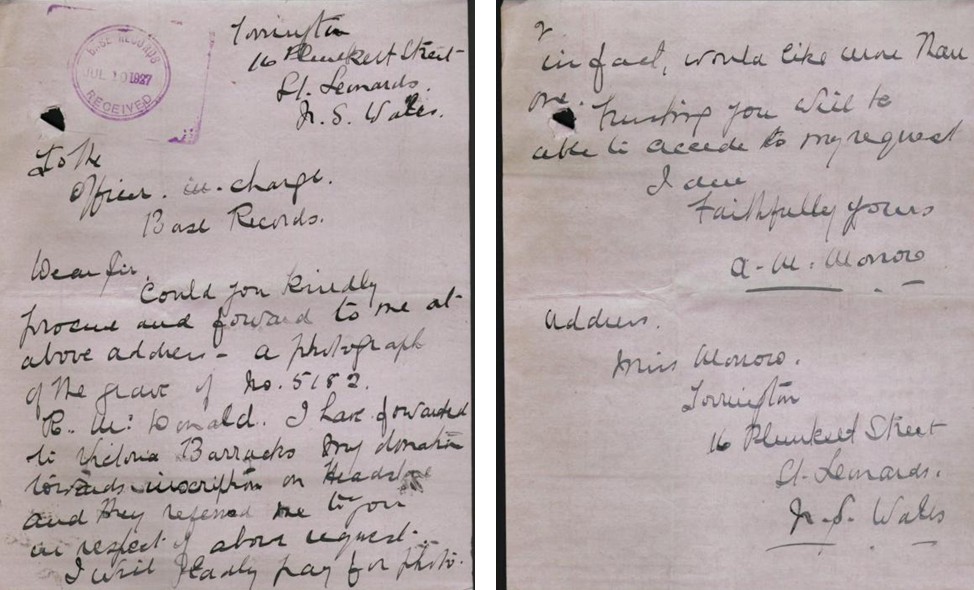 BASE RECORDS
JUL 10 1927
RECEIVED
Torrington
16 Plunkett Street
St. Leonards.
N. S. Wales.
To the
Officer. in. charge.
Base Records.
Dear Sir,
Could you kindly
procure and forward to me at
above address - a photograph
of the grave of No. 5182.
R. Mc Donald. I have forwarded
to Victoria Barracks my donation
towards inscription on Headstone
and they referred me to you
in respect of above request.
I will gladly pay for photo.
2
in fact, would like more than
one. Trusting you will be
able to accede to my request
I am
Faithfully yours
A. M. Monro
Address.
Miss Monro.
Torrington
16 Plunkett Street
St. Leonards.
N. S. Wales